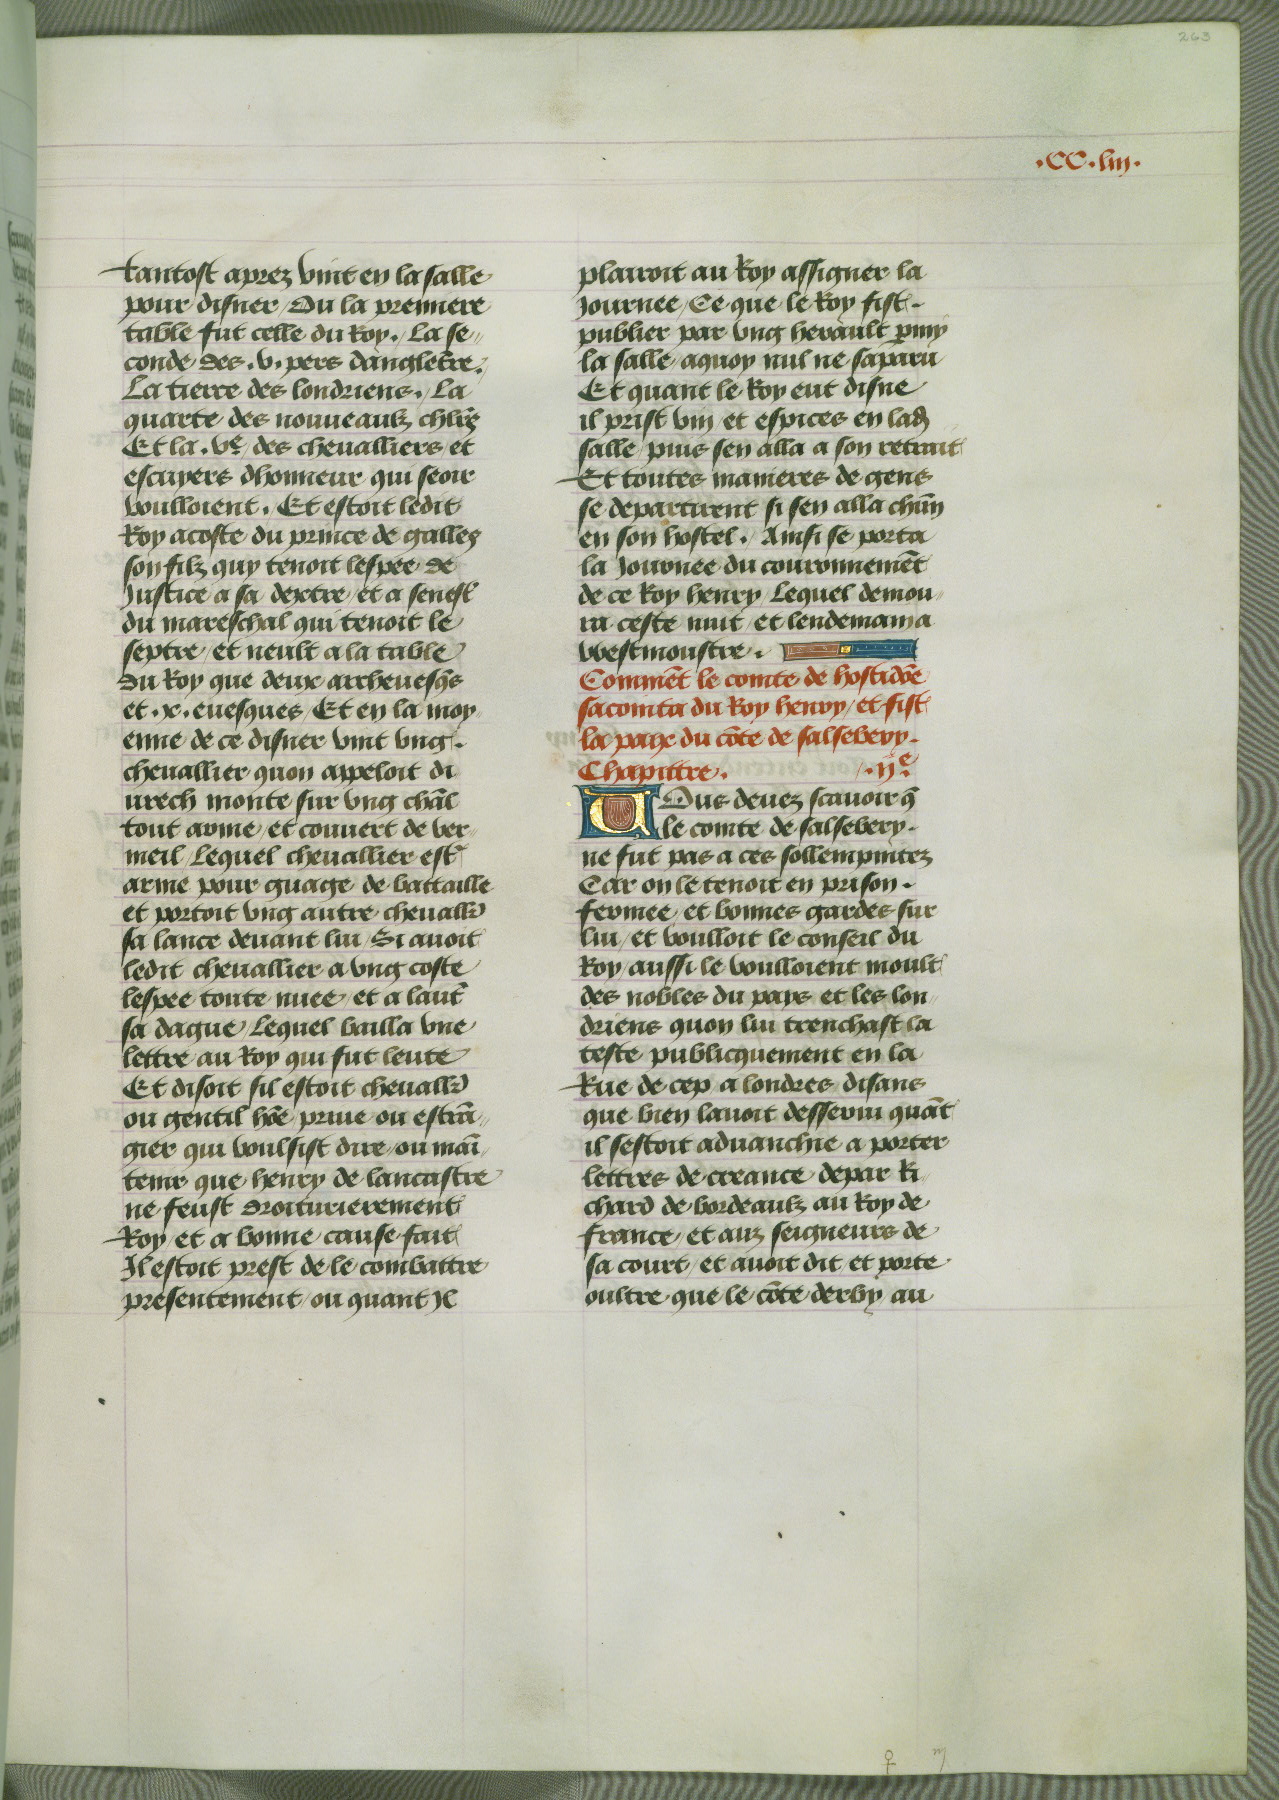 263
.CC.liij.
tantost aprez vint en la salle
pour disner / Ou la premiere
table fut celle du Roy. La se-
conde des .v. pers dangletere.
La tierce des londriens. La
quarte des nouueaulz chlrs
Et la .ve. des cheualliers et
escuyers dhonneur qui seoir
voulloient. Et estoit ledit
Roy acoste du prince de galles
son filz quy tenoit lespee de
Justice a sa dextre / et a senest
du mareschal qui tenoit le
septre / et neult a la table
du Roy que deux archeuesqs
et .x. euesques / Et en la moy
enne de ce disner vint vng.
cheuallier quon appeloit di
urech monte sur vng chal
tout arme / et couuert de ver-
meil / Lequel cheuallier est
arme pour guage de battaille
et portoit vng autre cheuallr
sa lance deuant lui / Si auoit
ledit cheuallier a vng coste
lespee toute nuee / et a laut
sa dague / Lequel bailla vne
lettre au Roy qui fut leute
Et disoit sil estoit cheuallr
ou gentil hõe priue ou estrã-
gier qui voulsist dire / ou mai-
tenir que henry de lancastre
ne feust droiturierement
Roy / et a bonne cause fait
Il estoit prest de le combattre
presentement / ou quant Il
plairoit au Roy assigner la
Journee / Ce que le Roy fist.
publier par vng herault pmy
la salle / aquoy nul ne saparu
Et quant le Roy eut disne
il prist vin et espices en lad
salle / puis sen alla a son retrait
Et toutes manieres de gens
se departirent si sen alla chũn
en son hostel. Ainsi se porta
la Journee du couronnemẽt
de ce Roy henry / Lequel demou-
ra ceste nuit / et lendemain a
westmoustre.
Commẽt le comte de hostidõe
sacointa du Roy henry / et fist
la paix du cõte de salsebery.
Chapittre. .ije.
Vous deuez scauoir q̃
le comte de salsebery.
ne fut pas a ces sollempnitez
Car on le tenoit en prison.
fermee / et bonnes gardes sur
lui / et voulloit le conseil du
Roy / aussi le voulloient moult
des nobles du pays et les lon-
driens quon lui trenchast la
teste publicquement en la
Rue de cep a londres / disans
que bien lauoit desserui quãt
il sestoit aduanchie a porter
lettres de creance depar Ri
chard de bordeaulx au Roy de
france / et aux seigneurs de
sa court / et auoit dit et porte
oultre que le cõte derby au